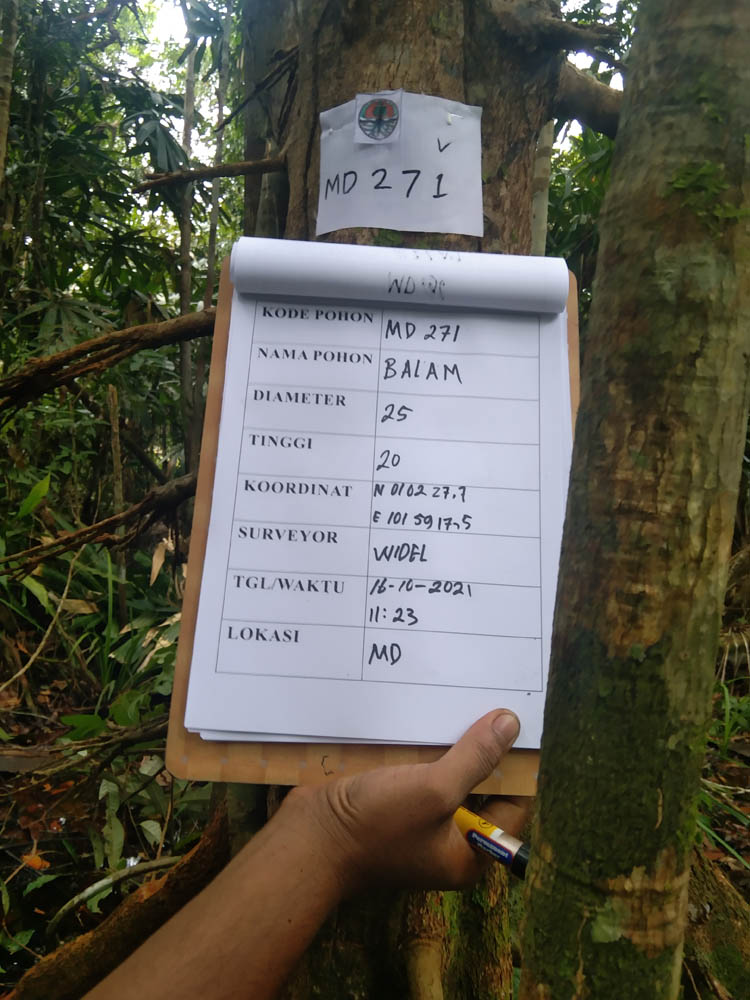 MD 271
KODE POHON MD 271
NAMA POHON BALAM
DIAMETER 25
TINGGI 20
KOORDINAT N 0102 27.7
E 101 59 17.5
SURVEYOR WIDEL
TGL/WAKTU 16-10-2021
11:23
LOKASI MD
Permanent